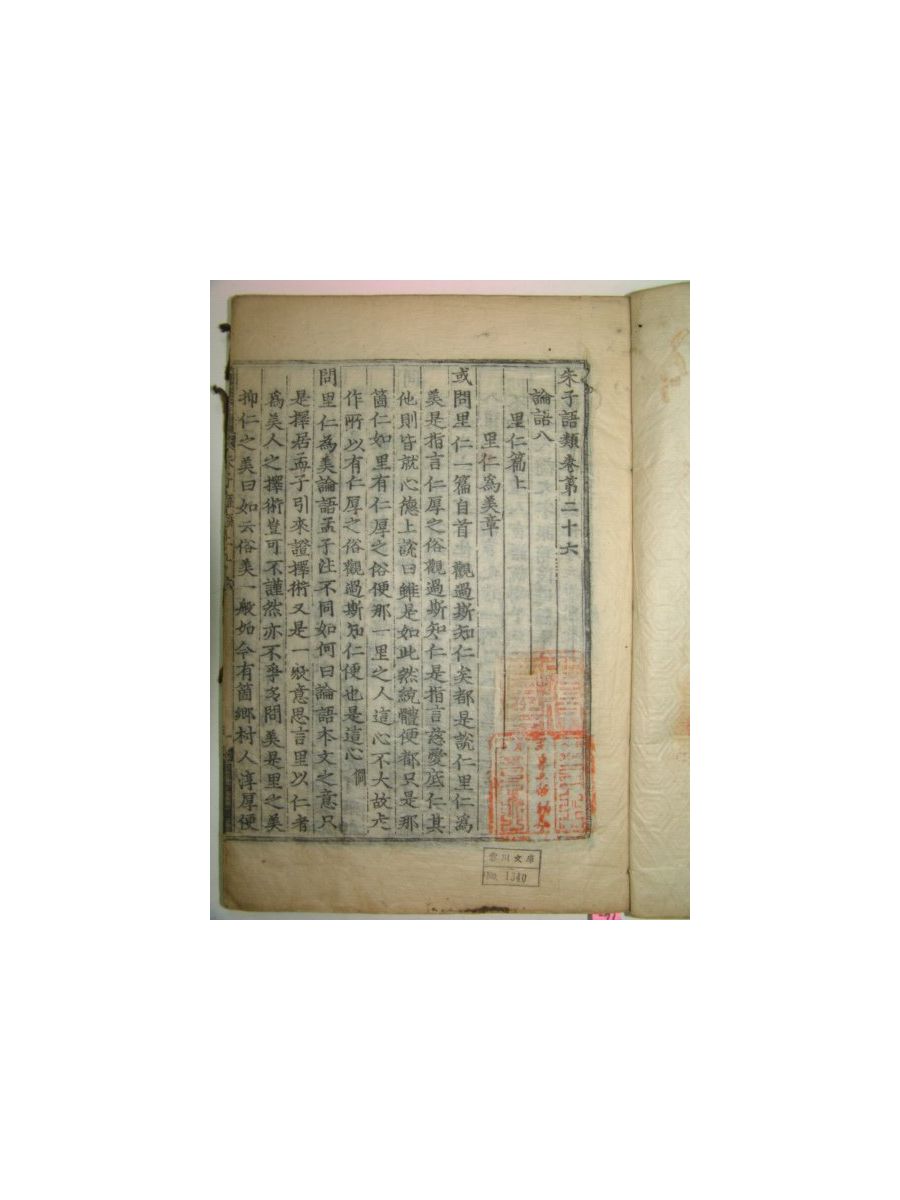 朱子語類卷第二十六
論語八
里仁篇上
里仁為美章
或問里仁一篇自首 觀過斯知仁矣都是說仁里仁為
美是指言仁厚之俗觀過斯知仁是指言慈愛底仁其
他則皆就心德上說曰雖是如此然統體便都只是那
箇仁如里有仁厚之俗便那一里之人這心不大故
作所以有仁厚之俗觀過斯知仁便也是這心 僩
問里仁為美論語孟子注不同如何曰論語本文之意只
是擇居孟子引來證擇術又是一般意思言里以仁者
為美人之擇術豈可不謹然亦不爭多問美是里之美
抑仁之美曰如云俗美一般如今有箇鄉村人淳厚便
文庫
No. 1340